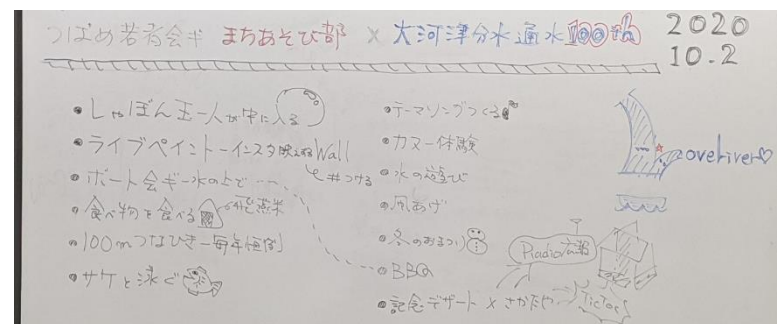 つばめ若者会ギ まちあそび部 × 大河津分水通水100th
2020
10.2
・しゃぼん玉一人が中に入る
・ライブペイントーインスタ映えるWall
と#つける
・ボート会ギー水の上で
・食べ物を食べる
・100mつなひきー毎年恒例
・サケと泳ぐ
・テーマソングつくる
・カヌー体験
・水の遊び
・凧あげ
・冬のおまつり
・BBQ
・記念デザート×さかたや
overiver♡
TicToc